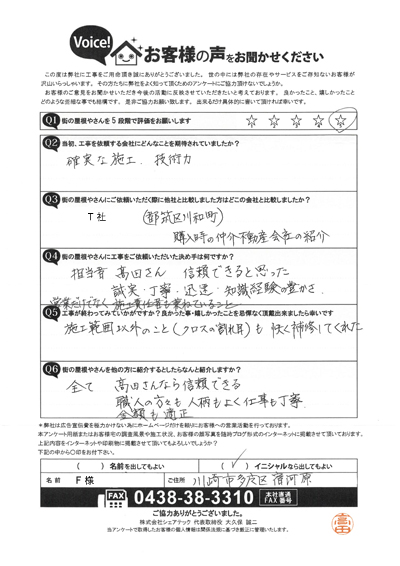 Voice!
お客様の声をお聞かせください
この度は弊社に工事をご用命頂き誠にありがとうございました。世の中には弊社の存在やサービスをご存知ないお客様が
沢山いらっしゃいます。その方たちに弊社をよく知って頂くためのアンケートにご協力頂けないでしょうか。
お客様のご意見をお聞かせいただき今後の活動に反映させていただきたいと考えております。良かったこと、嬉しかったこと
どのような些細な事でも結構です。是非ご協力お願い致します。出来るだけ具体的に書いて頂ければ幸いです。
Q1 街の屋根やさんを5段階で評価をお願いします ☆ ☆ ☆ ☆ ☆
Q2 当初、工事を依頼する会社にどんなことを期待されていましたか?
確実な施工、技術力
Q3 街の屋根やさんにご依頼いただく際に他社と比較しました方はどこの会社と比較しましたか?
T社 (都筑区川和町)
購入時の仲介不動産会社の紹介
Q4 街の屋根やさんに工事をご依頼いただいた決め手は何ですか?
担当者 高田さん 信頼できると思った
誠実・丁寧・迅速・知識経験の豊かさ、
営業だけでなく施工責任者も兼ねていること
Q5 工事が終わってみていかがですか?良かった事・嬉しかったことを忌憚なく頂戴出来ましたら幸いです
施工範囲以外のこと(クロスの割れ等)も快く補修してくれた
Q6 街の屋根やさんを他の方に紹介するとしたらなんと紹介しますか?
全て 高田さんなら信頼できる
職人の方々も人柄もよく仕事も丁寧
金額も適正
*弊社は広告宣伝費を極力かけない為にホームページだけを頼りにお客様への営業活動を行っております。
本アンケート用紙またはお客様宅の調査風景や施工状況、お客様の顔写真を随時ブログ形式のインターネットに掲載させて頂いております。
上記内容をインターネットや印刷物に掲載させて頂いてもよろしいでしょうか?
下記の中から〇印をお付下さい。
( )名前を出してもよい ( ✓ )イニシャルなら出してもよい
名前 F様 ご住所 川崎市多摩区
FAX 0438-38-3310 本社直通 FAX番号
ご協力ありがとうございました。
株式会社シェアテック 代表取締役 大久保 誠二
当アンケートで取得したお客様の個人情報は関係法令に基づき厳正に管理いたします。